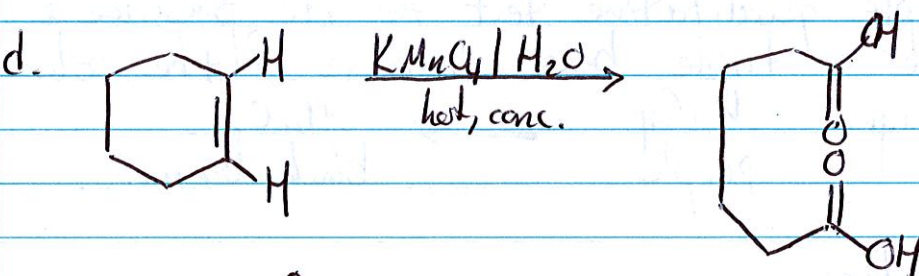 d.
H
H
KMnO4 / H2O
heat, conc.
OH
O
O
OH